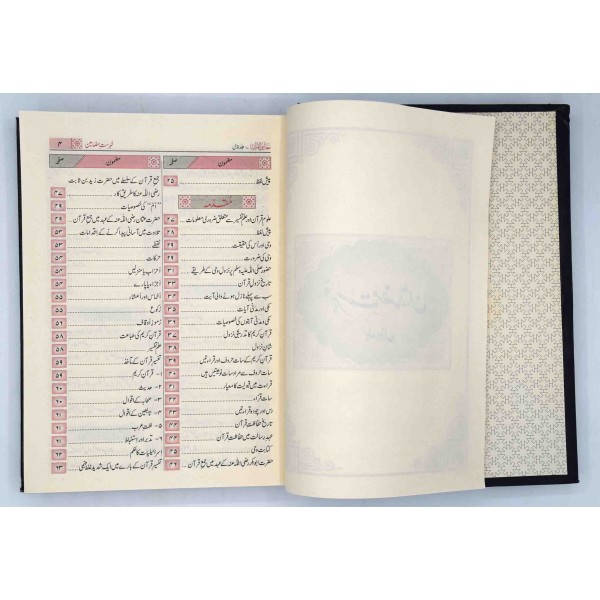 معارف القرآن جلد اوّل
فہرست مضامین
۳
مضمون صفحہ
پیش لفظ ۲۵
مقدمہ
علومِ قرآن اور علمِ تفسیر سے متعلق ضروری معلومات ۲۷
پیش لفظ ۲۸
وحی اور اُس کی حقیقت ۲۹
وحی کی ضرورت ۲۹
حضور صلی اللہ علیہ وسلم پر نزولِ وحی کے طریقے
تاریخ نزولِ قرآن
سب سے پہلے نازل ہونے والی آیت
مکی و مدنی آیات
مکی و مدنی آیتوں کی خصوصیات
قرآن کریم کا تدریجی نزول
شانِ نزول
قرآن کریم کے سات حروف اور قراءتیں
سات حروف سے مراد سات نوعیتیں ہیں
قراءت میں قبولیت کا معیار
سات قراء ۴۲
دس اور چودہ قراءتیں ۴۳
تاریخ حفاظتِ قرآن ۴۴
عہدِ رسالت میں حفاظتِ قرآن ۴۴
کتابتِ وحی ۴۵
حضرت ابوبکر رضی اللہ عنہ کے عہد میں جمع قرآن ۴۶
مضمون صفحہ
جمع قرآن کے سلسلے میں زید بن ثابت
رضی اللہ عنہ کا طریق کار ۴۷
”اُم“ کی خصوصیات ۴۹
حضرت عثمان رضی اللہ عنہ کے عہد میں جمع قرآن ۴۹
تلاوت میں آسانی پیدا کرنے کے اقدامات ۵۳
نقطے ۵۳
حرکات ۵۴
احزاب یا منزلیں ۵۴
اجزاء یا پارے ۵۴
اخماس اور اعشار ۵۴
رکوع ۵۵
رموزِ اوقاف ۵۵
قرآن کریم کی طباعت ۵۸
علمِ تفسیر ۵۸
تفسیر قرآن کے مآخذ ۵۹
۱- قرآن کریم ۵۹
۲- حدیث ۶۰
۳- صحابہ کے اقوال ۶۰
۴- تابعین کے اقوال ۶۱
۵- لغتِ عرب ۶۱
۶- تدبر اور استنباط ۶۱
اسرائیلیات کا حکم ۶۲
تفسیر قرآن کے بارے میں ایک شدید غلط فہمی ۶۳